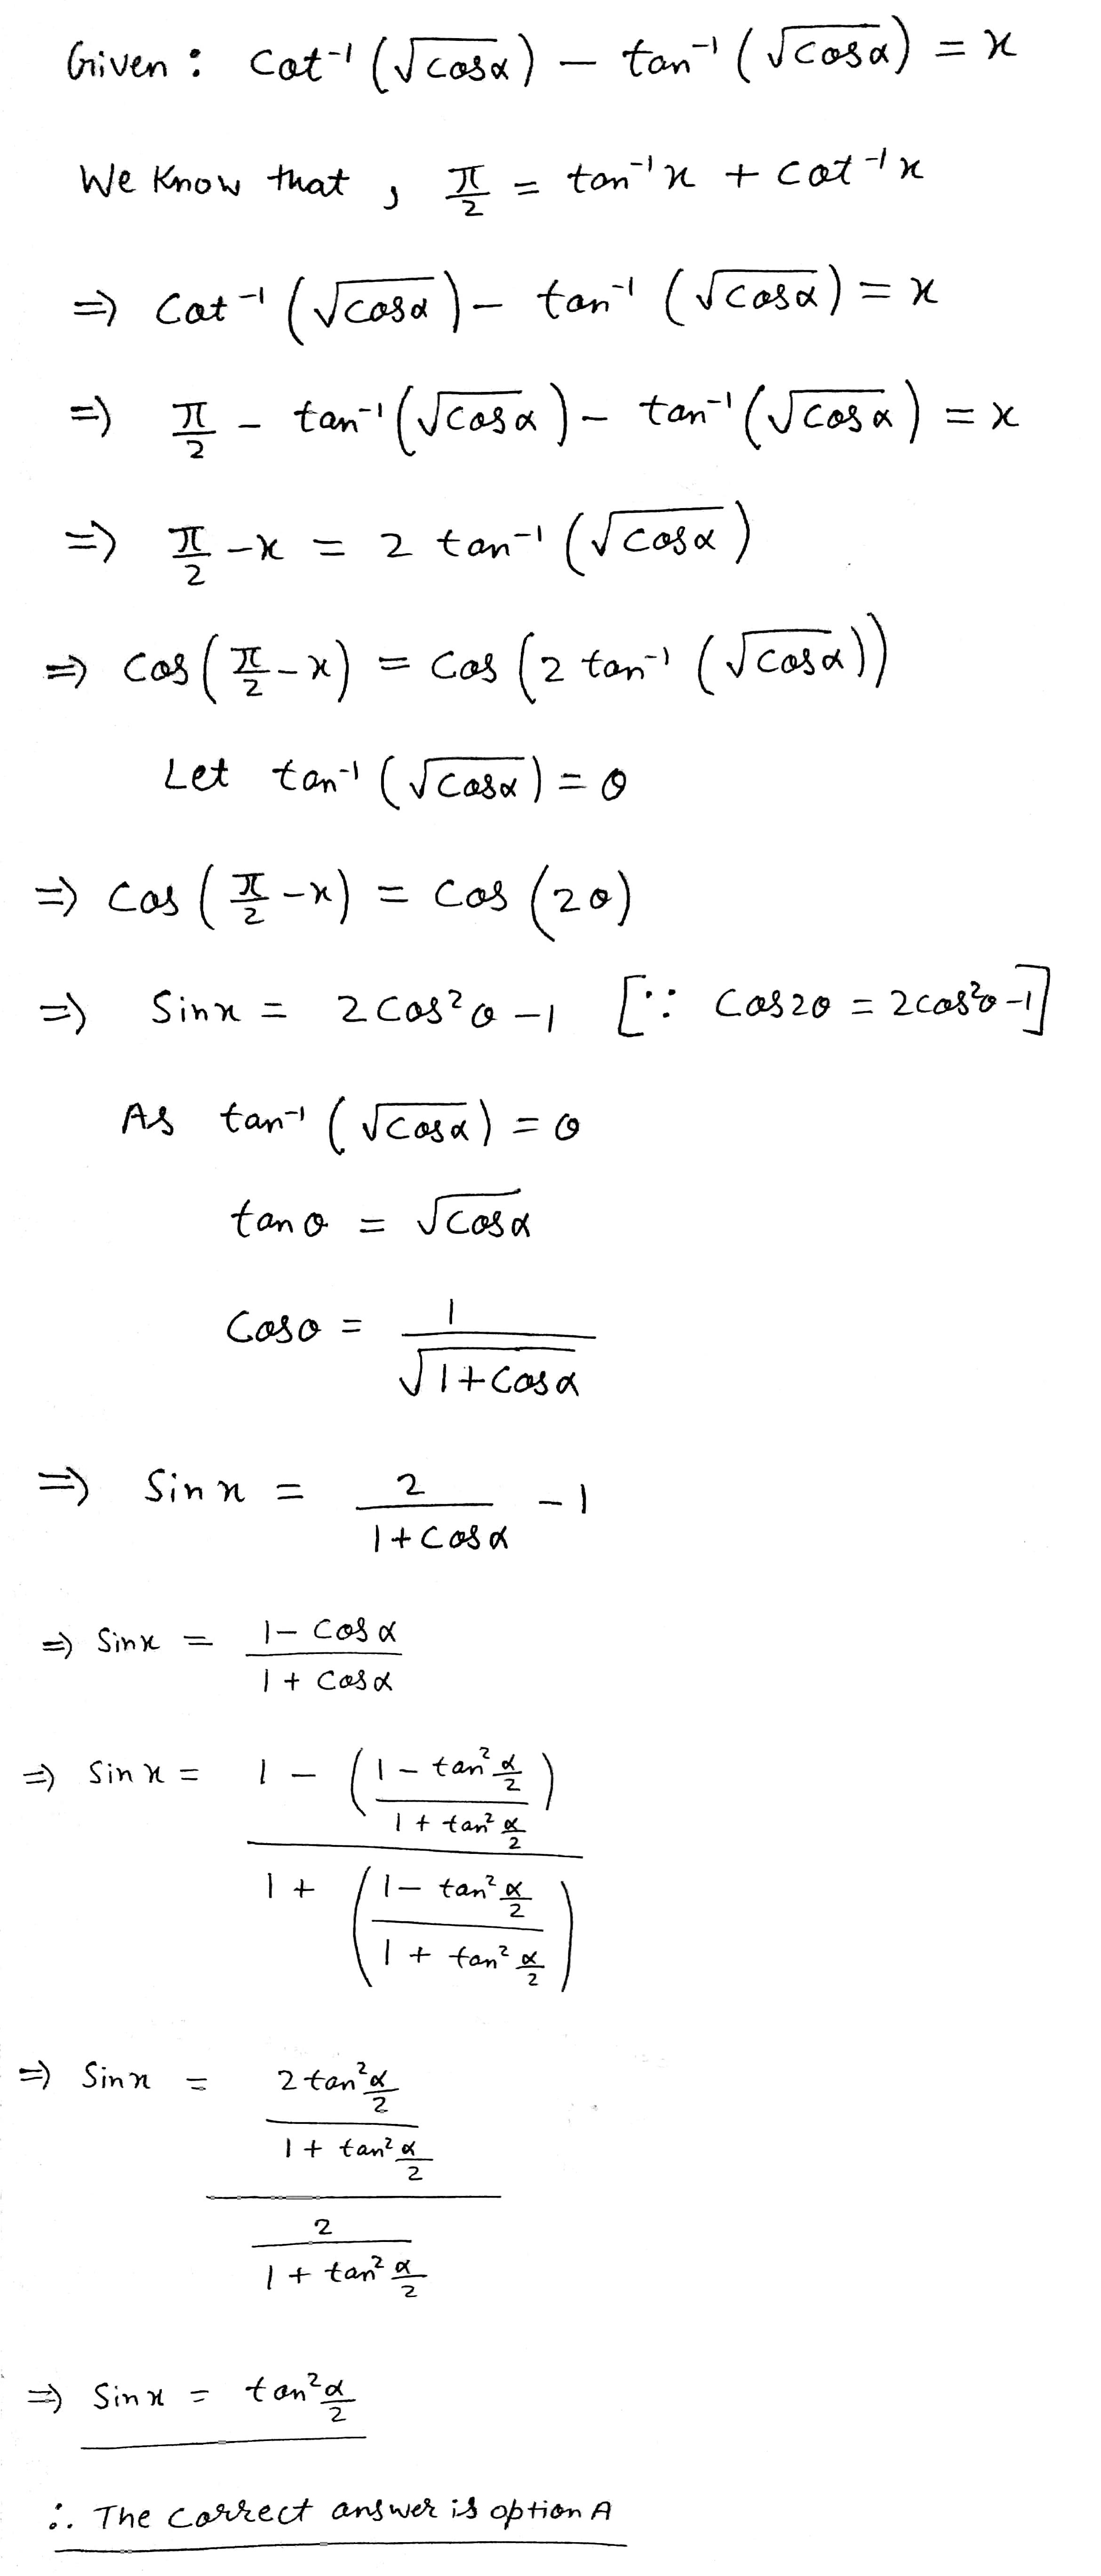 Given : cot⁻¹ (√cosα) − tan⁻¹ (√cosα) = x
We know that , π/2 = tan⁻¹x + cot⁻¹x
⇒ cot⁻¹ (√cosα) − tan⁻¹ (√cosα) = x
⇒ π/2 − tan⁻¹ (√cosα) − tan⁻¹ (√cosα) = x
⇒ π/2 − x = 2 tan⁻¹ (√cosα)
⇒ cos (π/2 − x) = cos (2 tan⁻¹ (√cosα))
Let tan⁻¹ (√cosα) = θ
⇒ cos (π/2 − x) = cos (2θ)
⇒ Sinx = 2cos²θ − 1 [∵ cos2θ = 2cos²θ − 1]
As tan⁻¹ (√cosα) = θ
tanθ = √cosα
cosθ = 1/√(1+cosα)
⇒ Sinx = 2/(1+cosα) − 1
⇒ Sinx = (1 − cosα)/(1 + cosα)
⇒ Sinx = (1 − ((1 − tan² α/2)/(1 + tan² α/2)))/(1 + ((1 − tan² α/2)/(1 + tan² α/2)))
⇒ Sinx = ((2tan² α/2)/(1 + tan² α/2))/(2/(1 + tan² α/2))
⇒ Sinx = tan² α/2
∴ The correct answer is option A